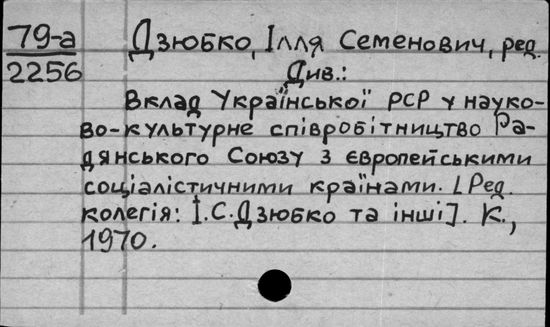 79-а Дзюбко, Ілля Семенович, ред.
2256 Див.:
Вклад Української РСР у науко-
во-культурне співробітництво Ра-
дянського Союзу з європейськими
соціалістичними країнами. [Ред.
колегія: І.С.Дзюбко та інші]. К.,
1970.